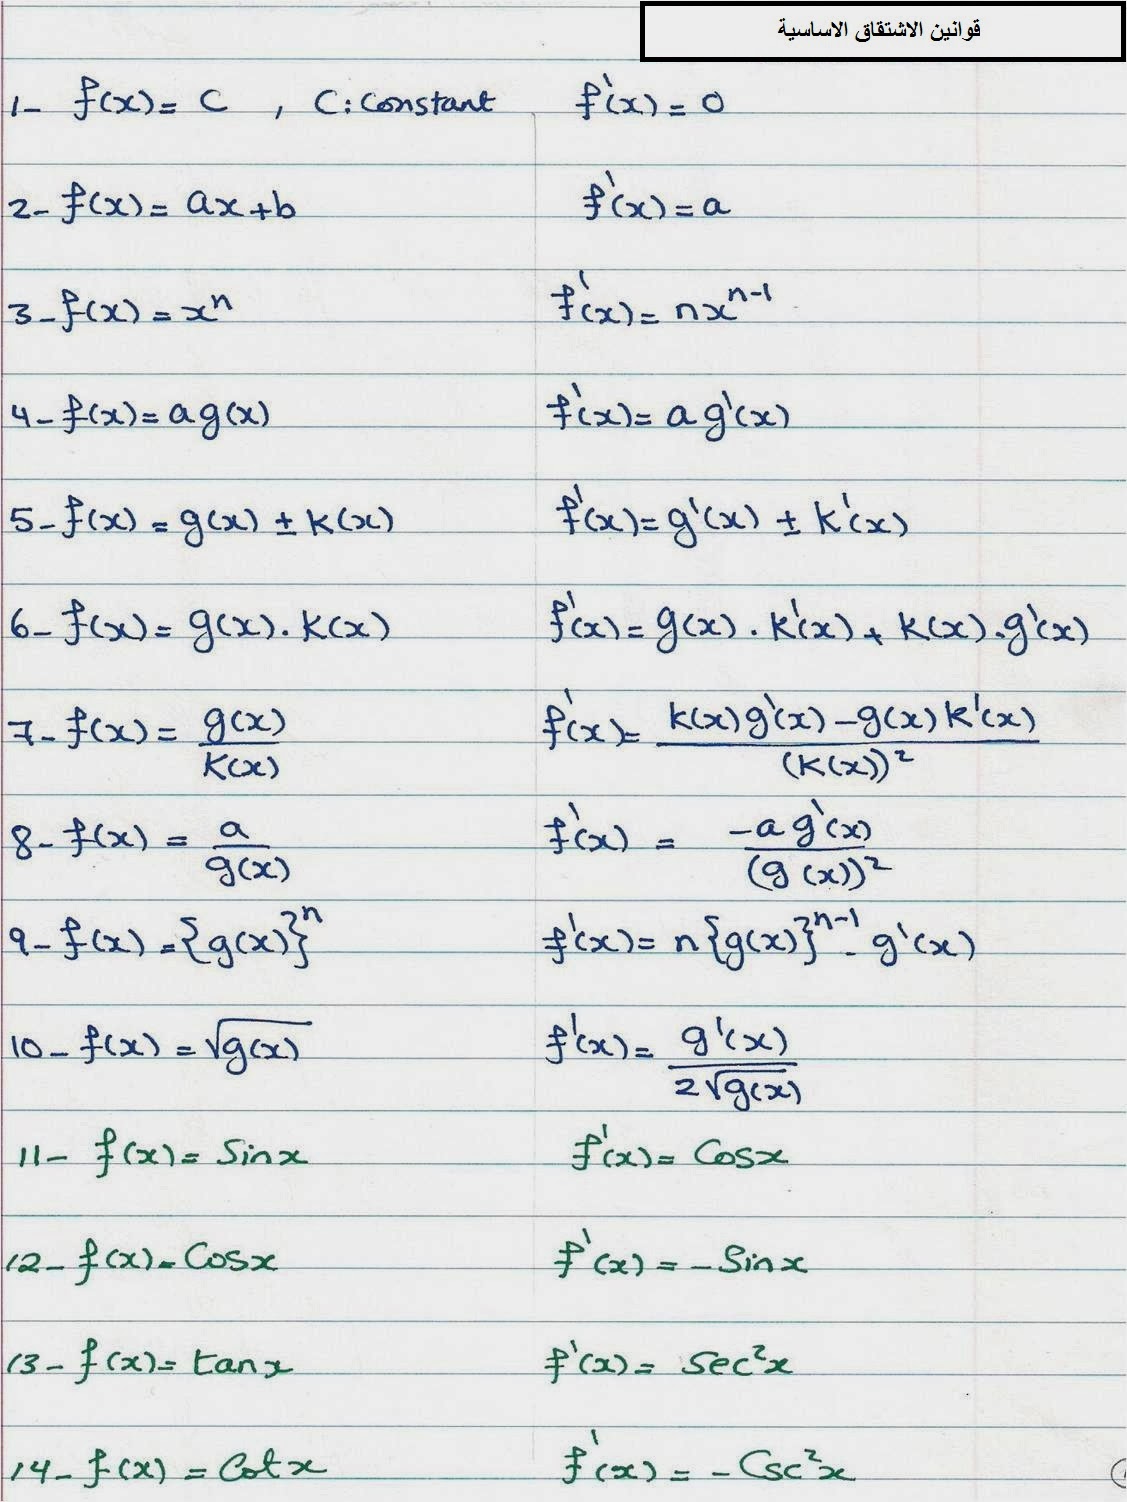 قوانين الاشتقاق الاساسية
1- f(x) = C , C: constant f'(x) = 0
2- f(x) = ax+b f'(x) = a
3- f(x) = xⁿ f'(x) = nxⁿ⁻¹
4- f(x) = a g(x) f'(x) = a g'(x)
5- f(x) = g(x) ± k(x) f'(x) = g'(x) ± k'(x)
6- f(x) = g(x) . k(x) f'(x) = g(x) . k'(x) + k(x) . g'(x)
7- f(x) = g(x)/k(x) f'(x) = k(x)g'(x) - g(x)k'(x)/(k(x))²
8- f(x) = a/g(x) f'(x) = -a g'(x)/(g(x))²
9- f(x) = {g(x)}ⁿ f'(x) = n{g(x)}ⁿ⁻¹ . g'(x)
10- f(x) = √g(x) f'(x) = g'(x)/2√g(x)
11- f(x) = Sinx f'(x) = Cosx
12- f(x) = Cosx f'(x) = -Sinx
13- f(x) = tanx f'(x) = Sec²x
14- f(x) = Cotx f'(x) = -Csc²x